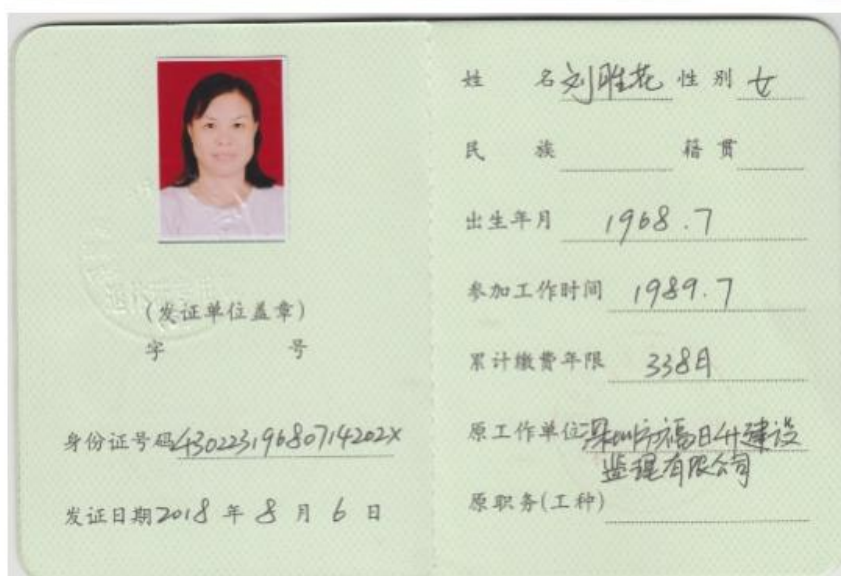 (发证单位盖章)
字 号
身份证号码43022319680714202X
发证日期2018年8月6日
姓 名刘胜花 性别 女
民 族 籍贯
出生年月 1968.7
参加工作时间 1989.7
累计缴费年限 338月
原工作单位深圳市福日升建设
监理有限公司
原职务(工种)